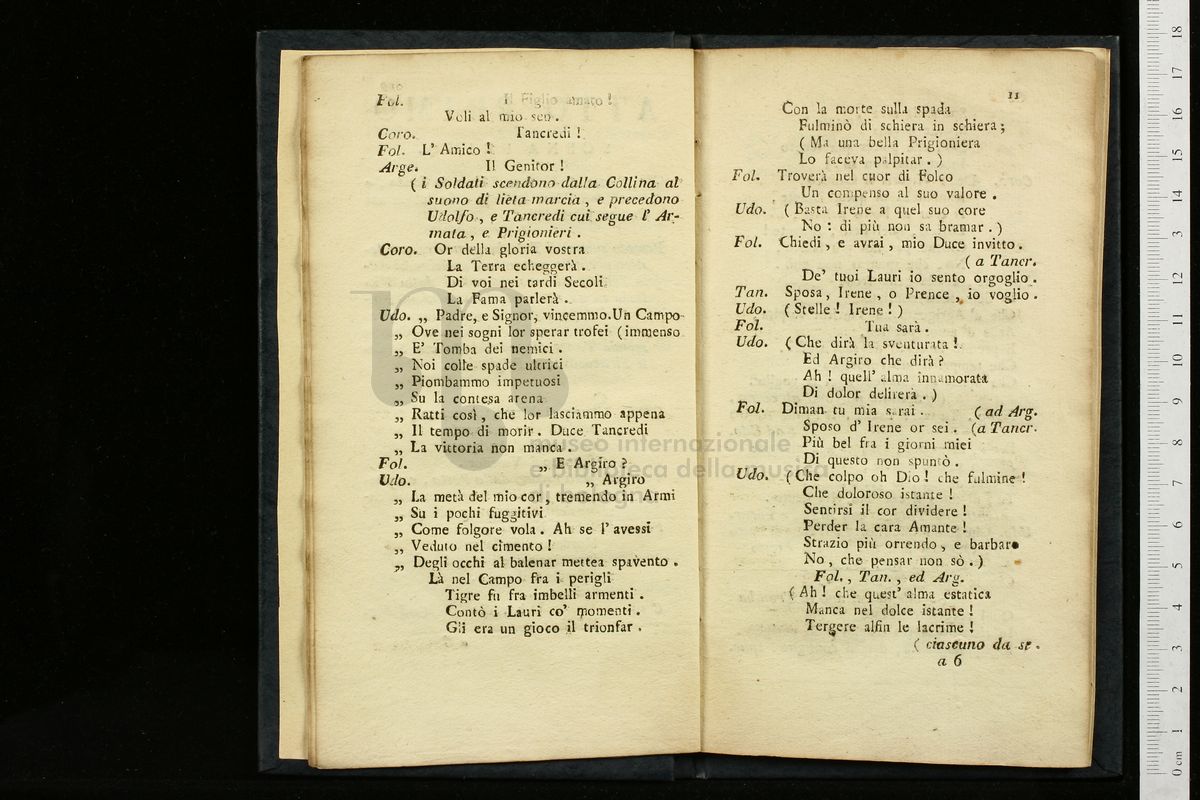 Fol. Il Figlio amato !
Voli al mio sen .
Coro. Tancredi !
Fol. L' Amico !
Arge. Il Genitor !
( i Soldati scendono dalla Collina al
suono di lieta marcia , e precedono
Udolfo , e Tancredi cui segue l' Ar-
mata , e Prigionieri .
Coro. Or della gloria vostra
La Terra echeggerà .
Di voi nei tardi Secoli
La Fama parlerà .
Udo. „ Padre, e Signor, vincemmo. Un Campo
„ Ove nei sogni lor sperar trofei ( immenso
„ E' Tomba dei nemici .
„ Noi colle spade ultrici
„ Piombammo impetuosi
„ Su la contesa arena
„ Ratti così , che lor lasciammo appena
„ Il tempo di morir . Duce Tancredi
„ La vittoria non manca .
Fol. „ E Argiro ?
Udo. „ Argiro
„ La metà del mio cor , tremendo in Armi
„ Su i pochi fuggitivi
„ Come folgore vola . Ah se l' avessi
„ Veduto nel cimento !
„ Degli occhi al balenar mettea spavento .
Là nel Campo fra i perigli
Tigre fu fra imbelli armenti .
Contò i Lauri co' momenti .
Gli era un gioco il trionfar .
11
Con la morte sulla spada
Fulminò di schiera in schiera ;
( Ma una bella Prigioniera
Lo faceva palpitar . )
Fol. Troverà nel cuor di Folco
Un compenso al suo valore .
Udo. ( Basta Irene a quel suo core
No : di più non sa bramar . )
Fol. Chiedi , e avrai , mio Duce invitto .
( a Tancr.
De' tuoi Lauri io sento orgoglio .
Tan. Sposa , Irene , o Prence , io voglio .
Udo. ( Stelle ! Irene ! )
Fol. Tua sarà .
Udo. ( Che dirà la sventurata !
Ed Argiro che dirà ?
Ah ! quell' alma innamorata
Di dolor delirerà . )
Fol. Diman tu mia sarai . ( ad Arg.
Sposo d' Irene or sei . (a Tancr.
Più bel fra i giorni miei
Di questo non spuntò .
Udo. ( Che colpo oh Dio ! che fulmine !
Che doloroso istante !
Sentirsi il cor dividere !
Perder la cara Amante !
Strazio più orrendo , e barbaro
No , che pensar non sò . )
Fol. , Tan. , ed Arg.
( Ah ! che quest' alma estatica
Manca nel dolce istante !
Tergere alfin le lacrime !
( ciascuno da se .
a 6
museo internazionale
e biblioteca della musica